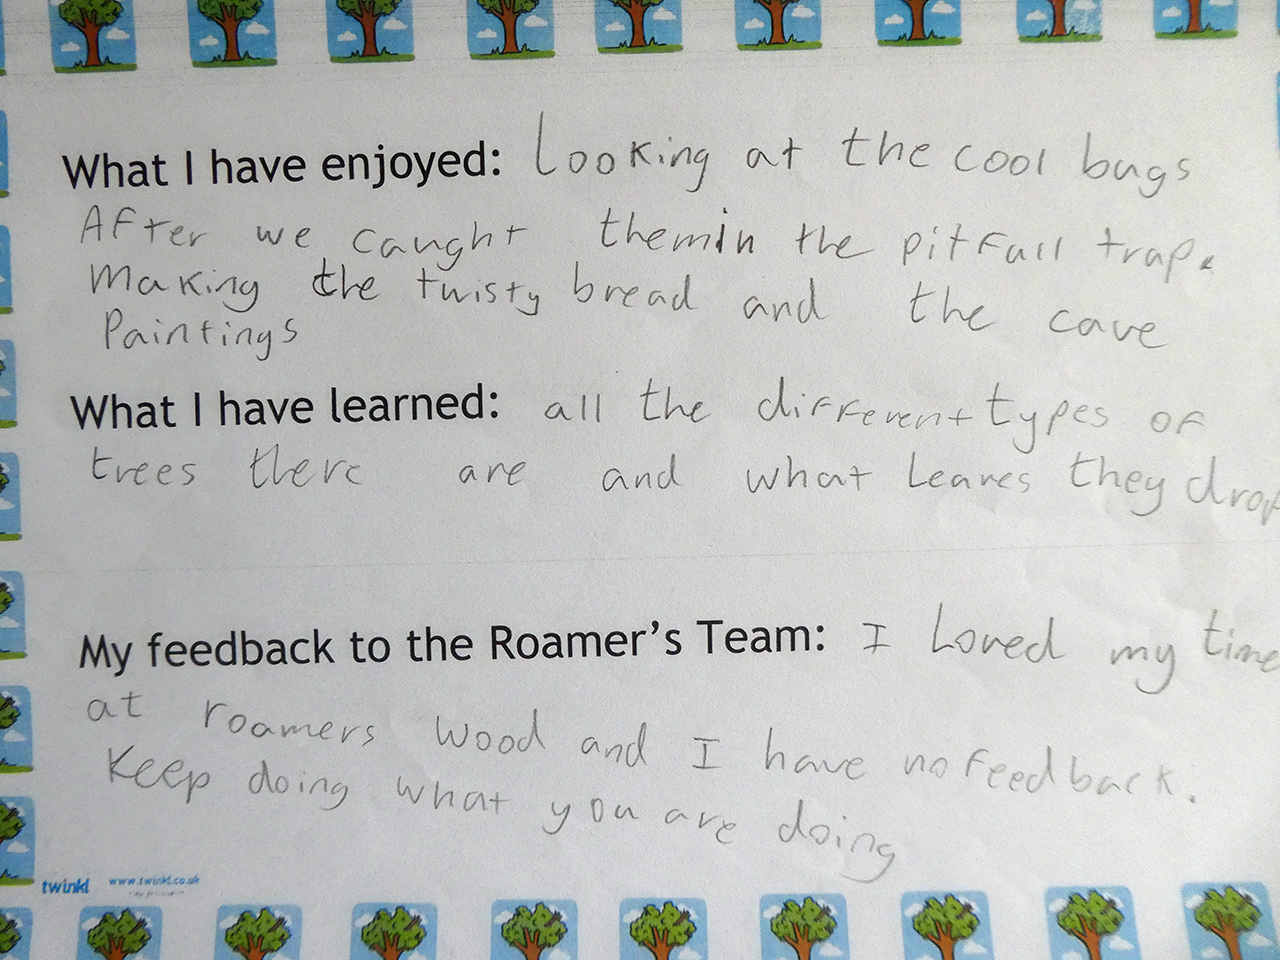 What I have enjoyed: Looking at the cool bugs
After we caught themin the pitfall trap.
Making the twisty bread and the cave
Paintings
What I have learned: all the different types of
trees there are and what Leaves they drop
My feedback to the Roamer's Team: I Loved my time
at roamers wood and I have no feedback.
Keep doing what you are doing
twinkl www.twinkl.co.uk